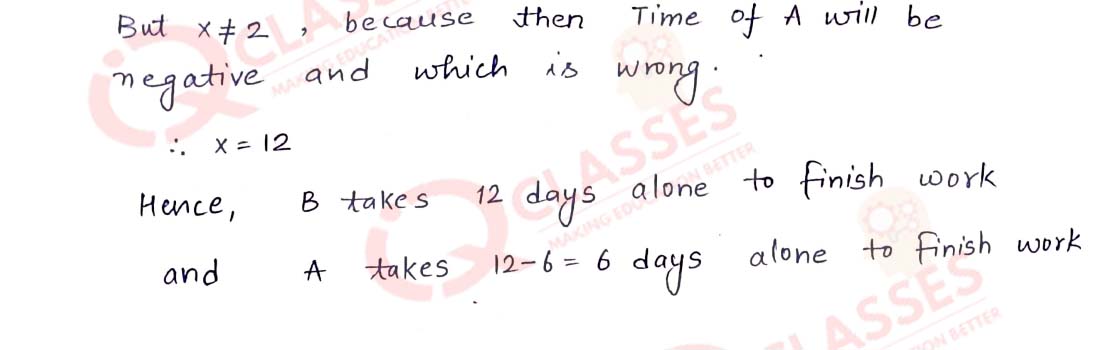 But x ≠ 2, because then Time of A will be
negative and which is wrong.
∴ x = 12
Hence, B takes 12 days alone to finish work
and A takes 12-6 = 6 days alone to finish work
CLASSES
MAKING EDUCATION BETTER
CLASSES
MAKING EDUCATION BETTER
CLASSES
ON BETTER